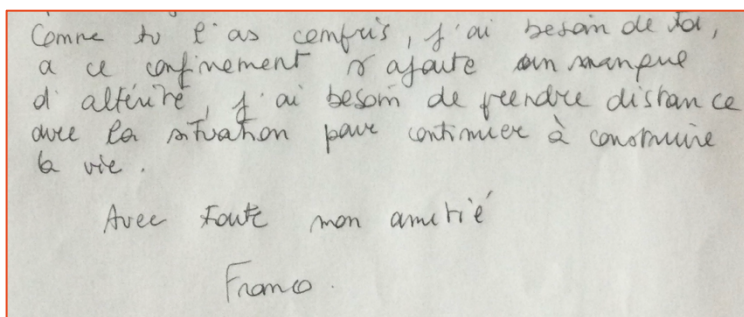 Comme tu l'as compris, j'ai besoin de toi,
a ce confinement s'ajoute un manque
d'altérité, j'ai besoin de prendre distance
avec la situation pour continuer à construire
la vie.
Avec toute mon amitié
Franco.